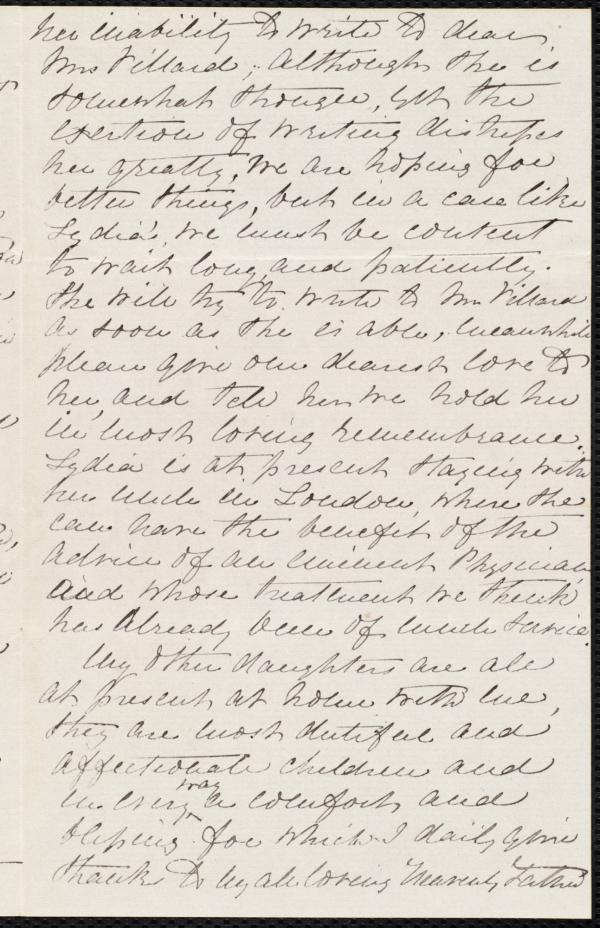 her inability to write to dear
Mrs Villard; Although she is
somewhat stronger, yet the
exertion of writing distresses
her greatly, We are hoping for
better things, but in a case like
Lydia's, we must be content
to wait long, and patiently.
She will try to write to Mrs Villard
as soon as she is able, meanwhile
please give our dearest love to
her, and tell her we hold her
in most loving remembrance.
Lydia is at present staying with
her uncle in London, where she
can have the benefit of the
advice of an eminent Physician,
and whose treatment we think
has already been of much service.
My other daughters are all
at present at home with me,
they are most dutiful and
affectionate children and
in every way a comfort and
blessing for which I daily give
thanks to my all loving Heavenly Father